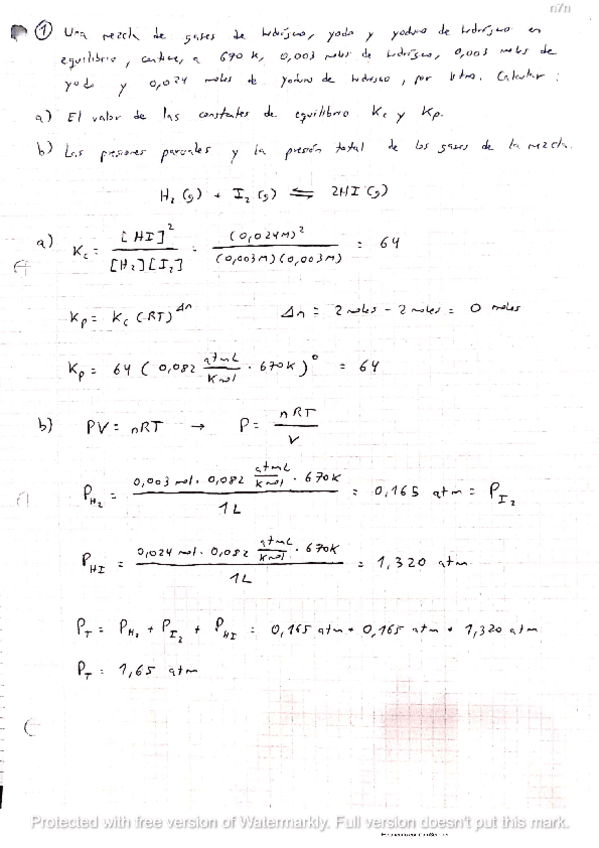 n7n
① Una mezcla de gases de hidrógeno, yodo y yoduro de hidrógeno en
equilibrio, contiene, a 670 K, 0,003 moles de hidrógeno, 0,003 moles de
yodo y 0,024 moles de yoduro de hidrógeno, por litro. Calcular:
a) El valor de las constantes de equilibrio Kc y Kp.
b) Las presiones parciales y la presión total de los gases de la mezcla.
H₂ (g) + I₂ (g) ⇌ 2HI (g)
a) Kc = [HI]² / [H₂][I₂] = (0,024M)² / (0,003M)(0,003M) = 64
Kp = Kc (RT)^Δn Δn = 2 moles - 2 moles = 0 moles
Kp = 64 (0,082 atmL/Kmol · 670K)⁰ = 64
b) PV = nRT → P = nRT / V
P_H₂ = 0,003 mol · 0,082 atmL/Kmol · 670K / 1L = 0,165 atm = P_I₂
P_HI = 0,024 mol · 0,082 atmL/Kmol · 670K / 1L = 1,320 atm
P_T = P_H₂ + P_I₂ + P_HI = 0,165 atm + 0,165 atm + 1,320 atm
P_T = 1,65 atm
Protected with free version of Watermarkly. Full version doesn't put this mark.